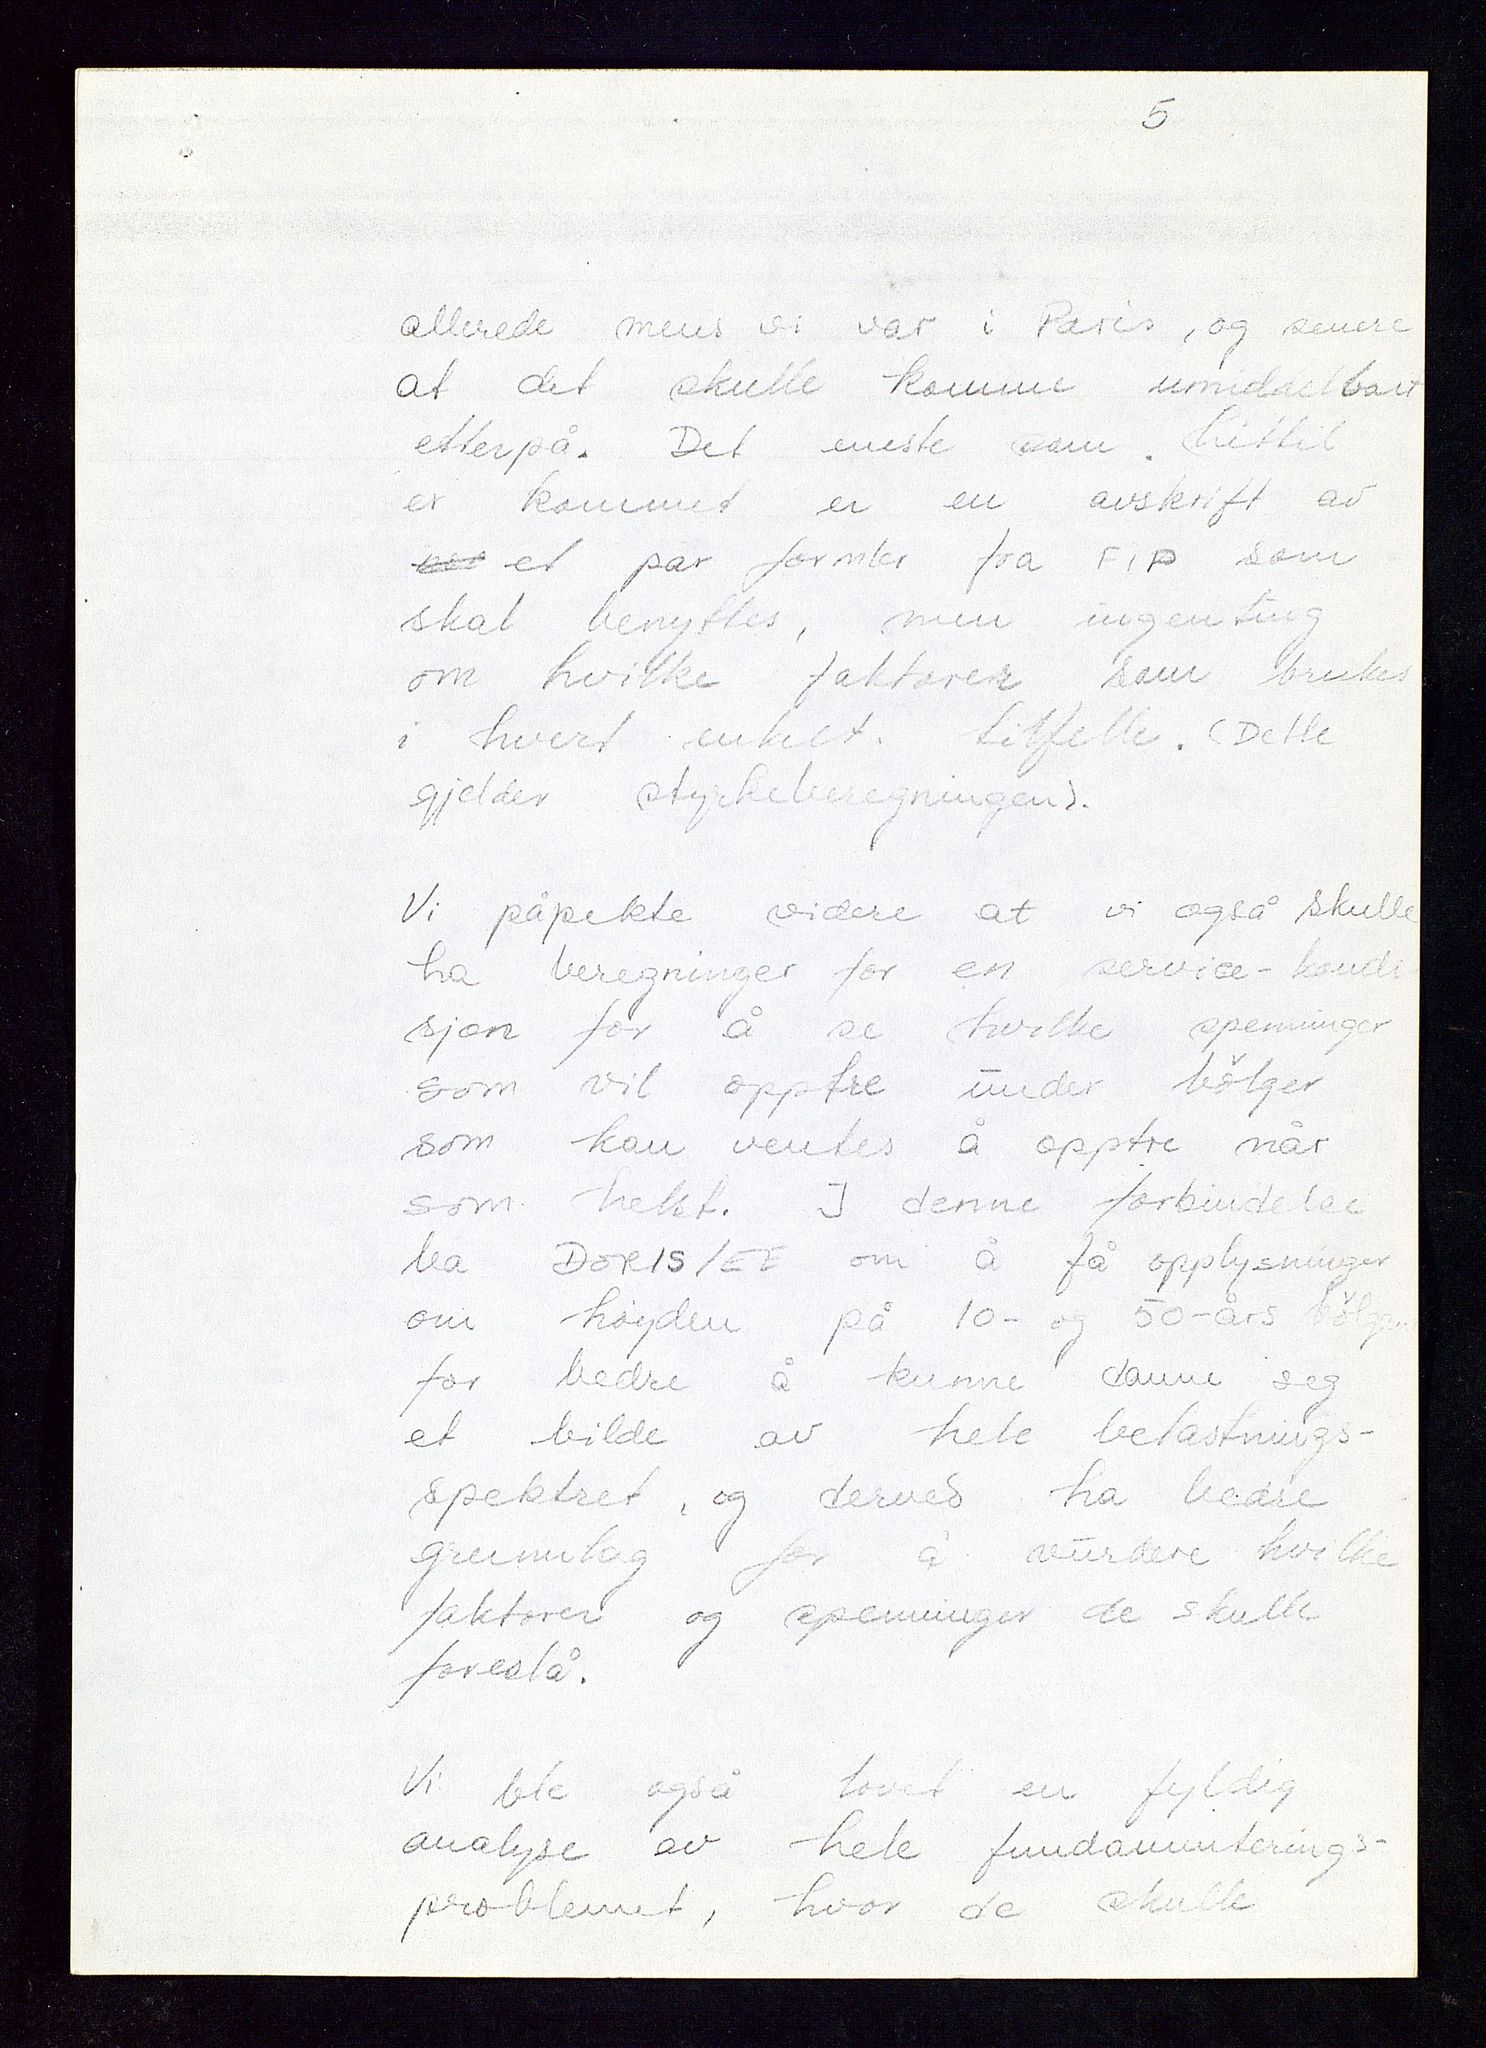 5
allerede mens vi var i Paris, og senere
at det skulle komme umiddelbart
etterpå. Det eneste som hittil
er kommet er en avskrift av
et par formler fra FIP som
skal benyttes, men ingenting
om hvilke faktorer som brukes
i hvert enkelt tilfelle. (Dette
gjelder styrkeberegningen).
Vi påpekte videre at vi også skulle
ha beregninger for en service-kondi
sjon for å se hvilke spenninger
som vil opptre under bölger
som kan ventes å opptre når
som helst. I denne forbindelse
ba DORIS/EE om å få opplysninger
om høyden på 10- og 50-års bölgen
for bedre å kunne danne seg
et bilde av hele belastnings-
spektret, og derved ha bedre
grunnlag for å vurdere hvilke
faktorer og spenninger de skulle
foreslå.
Vi ble også lovet en fyldig
analyse av hele fundamenterings-
problemet, hvor de skulle